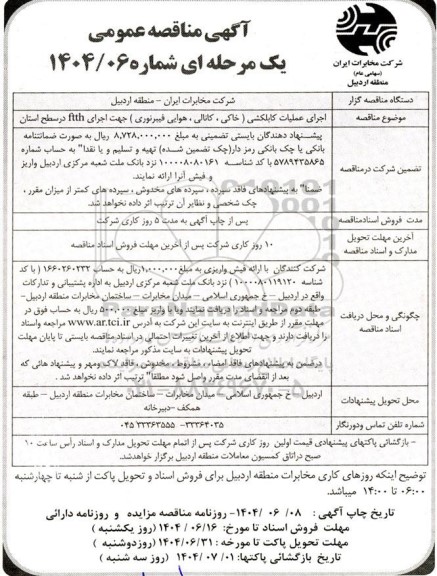 آگهی مناقصه عمومی
یک مرحله ای شماره ۱۴۰۴/۰۶
شرکت مخابرات ایران
(سهامی عام)
منطقه اردبیل
دستگاه مناقصه گزار
شرکت مخابرات ایران - منطقه اردبیل
موضوع مناقصه
اجرای عملیات کابلکشی ( خاکی ، کانالی ، هوایی فیبرنوری ) جهت اجرای ftth درسطح استان
تضمین شرکت درمناقصه
پیشنهاد دهندگان بایستی تضمینی به مبلغ ۸,۷۲۸,۰۰۰,۰۰۰ ریال به صورت ضمانتنامه
بانکی یا چک بانکی رمز دار(چک تضمین شده) تهیه و تسلیم و یا نقدا" به حساب شماره
۵۷۸۹۴۳۸۶۵ با کد شناسه ۱۰۰۰۰۸۰۸۰۱۶۱ نزد بانک ملت شعبه مرکزی اردبیل واریز
و فیش آنرا ارائه نمایند.
ضمنا" به پیشنهادهای فاقد سپرده ، سپرده های مخدوش ، سپرده های کمتر از میزان مقرر ،
چک شخصی و نظایر آن ترتیب اثر داده نخواهد شد.
مدت فروش اسنادمناقصه
پس از چاپ آگهی به مدت ۵ روز کاری شرکت
آخرین مهلت تحویل
مدارک و اسناد مناقصه
۱۰ روز کاری شرکت پس از آخرین مهلت فروش اسناد مناقصه
چگونگی و محل دریافت
اسناد مناقصه
شرکت کنندگان با ارائه فیش واریزی به مبلغ ۱,۰۰۰,۰۰۰ ریال به حساب ۱۶۶۰۲۶۰۲۳۲ ( با کد
شناسه ۱۰۰۰۰۸۰۱۱۹۱۲۰ ) نزد بانک ملت شعبه مرکزی اردبیل به اداره پشتیبانی و تدارکات
واقع در اردبیل - خ جمهوری اسلامی - میدان مخابرات - ساختمان مخابرات منطقه اردبیل-
طبقه دوم مراجعه و اسناد را دریافت نمایند ویا با واریز مبلغ ۵۰۰,۰۰۰ ریال به حساب فوق در
مهلت مقرر از طریق اینترنت به سایت این شرکت به آدرس www.ar.tci.ir مراجعه واسناد
را دریافت دارند و جهت اطلاع از آخرین تغییرات احتمالی در اسناد مناقصه بایستی تا پایان مهلت
تحویل پیشنهادات به سایت مذکور مراجعه نمایند.
درضمن به پیشنهادهای فاقد امضاء ، مشروط ، مخدوش ، فاقد لاک ومهر و پیشنهاد هائی که
بعد از انقضای مدت مقرر واصل شود مطلقا" ترتیب اثر داده نخواهد شد .
محل تحویل پیشنهادات
اردبیل - خ جمهوری اسلامی - میدان مخابرات - ساختمان مخابرات منطقه اردبیل - طبقه
همکف -دبیرخانه
شماره تلفن تماس ودورنگار
۳۳۳۶۴۰۳۵- ۳۳۳۶۳۵۵۵ ۰۴۵
- بازگشائی پاکتهای پیشنهادی قیمت اولین روز کاری شرکت پس از اتمام مهلت تحویل مدارک و اسناد رأس ساعت ۱۰
صبح دراتاق کمسیون معاملات منطقه اردبیل برگزار خواهدشد.
توضیح اینکه روزهای کاری مخابرات منطقه اردبیل برای فروش اسناد و تحویل پاکت از شنبه تا چهارشنبه
۰۶:۰۰ تا ۱۴:۰۰ میباشد.
تاریخ چاپ آگهی : ۰۸/ ۰۶ /۱۴۰۴- روزنامه مناقصه مزایده و روزنامه دارائی
مهلت فروش اسناد تا مورخ: ۱۴۰۴/۰۶/۱۶ (روز یکشنبه )
مهلت تحویل پاکت تا مورخه : ۱۴۰۴/۰۶/۳۱ (روزدوشنبه )
تاریخ بازگشائی پاکتها: ۰۱/ ۰۷/ ۱۴۰۴ (روز سه شنبه )